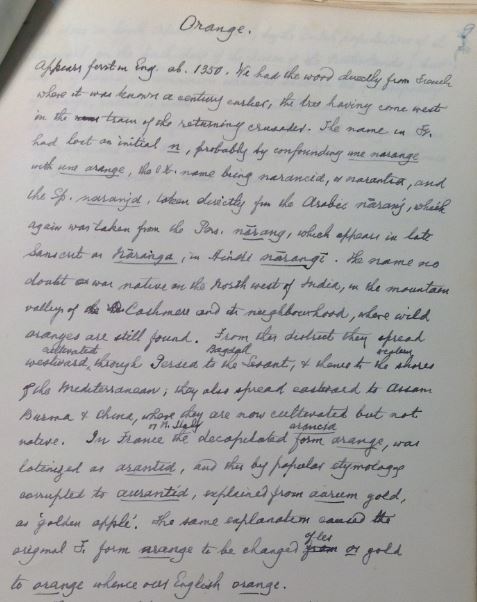 Orange.
Appears first in Eng. ab. 1350. We had the word directly from French
where it was known a century earlier, the tree having come west
in the train of the returning crusades. The name in Fr.
had lost an initial n, probably by confounding une narange
with une arange, the It. name being narancia, or narantia, and
the Sp. naranja, taken directly fm the Arabic nāranj, which
again was taken from the Pers. nārang, which appears in late
Sanscrit as Nāranga, in Hindi nārangī. The name no
doubt as was native on the North west of India, in the mountain
valley of the Cashmere and its neighbourhood, where wild
oranges are still found. From this district they spread
cultivated Bagdad western
westward, through Persia to the Levant, & thence to the shores
of the Mediterranean; they also spread eastward to Assam
Burma & China, where they are now cultivated but not
or N. Italy arancia
native. In France the decapitated form arange, was
latinized as arantia, and this by popular etymology
corrupted to aurantia, explained from aurum gold,
as 'golden apple'. The same explanation caused the
original F. form arange to be changed from or gold
to orange whence our English orange.